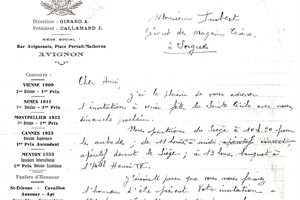 Directeur : GIRARD A.
Président : CALLAMAND J.
SIÈGE SOCIAL :
Bar Avignonnais, Place Portail-Matheron
AVIGNON
Concours :
VIENNE 1909
1re Division - 1er Prix
NIMES 1911
1er Prix
MONTPELLIER 1922
1er Prix
CANNES 1925
Division Supérieure
1er Prix Ascendant
MENTON 1933
Concours International
1er Prix Division Excellence
Fanfare d'Honneur
St-Etienne - Cavaillon
Annonay - Apt
Monsieur Imbert
Gérant de Magasin Casino
à Sorgues
Cher Ami,
J'ai le plaisir de vous adresser
l'invitation à notre fête de Sainte Cécile avec nous
dimanche prochain.
Nous partirons du Siège à 10 h. 20 pour
la aubade ; de 11 heures à midi apéritif concert
apéritif devant le Siège ; à 13 heures banquet à
l'Hôtel Henri IV.
J'espère que vous nous ferez
l'honneur d'être présent. Votre invitation a